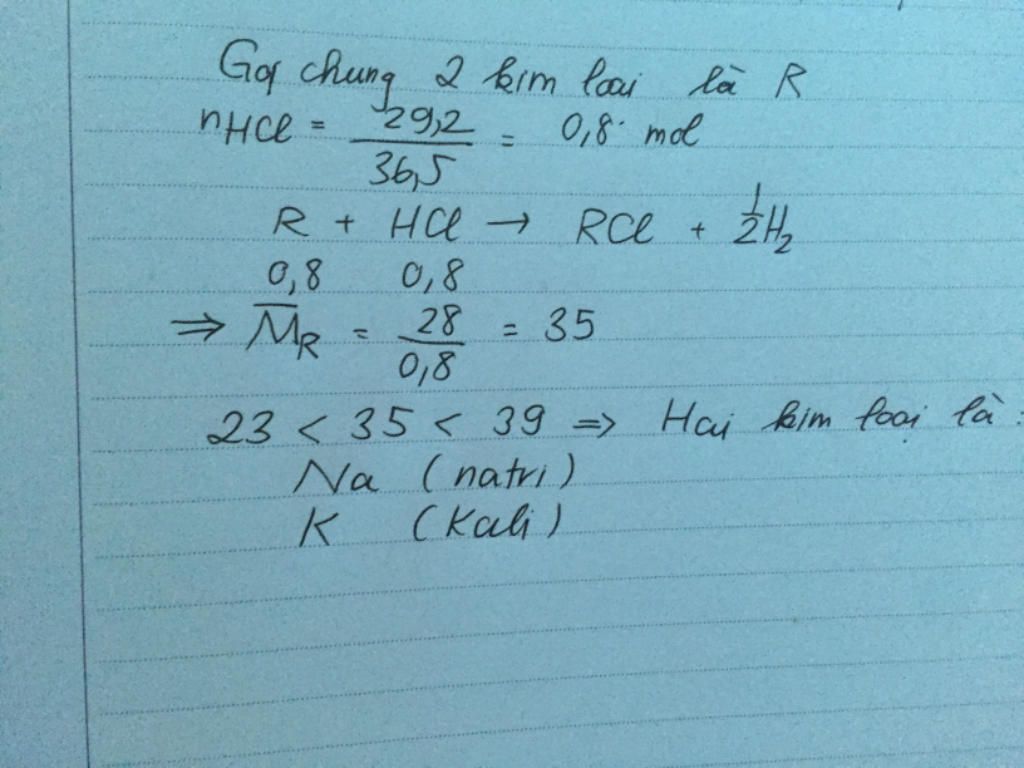 Gọi chung 2 kim loại là R
nHCl = 29,2 / 36,5 = 0,8 mol
R + HCl → RCl + 1/2 H2
0,8 0,8
⇒ M̅R = 28 / 0,8 = 35
23 < 35 < 39 ⇒ Hai kim loại là :
Na (natri)
K (Kali)